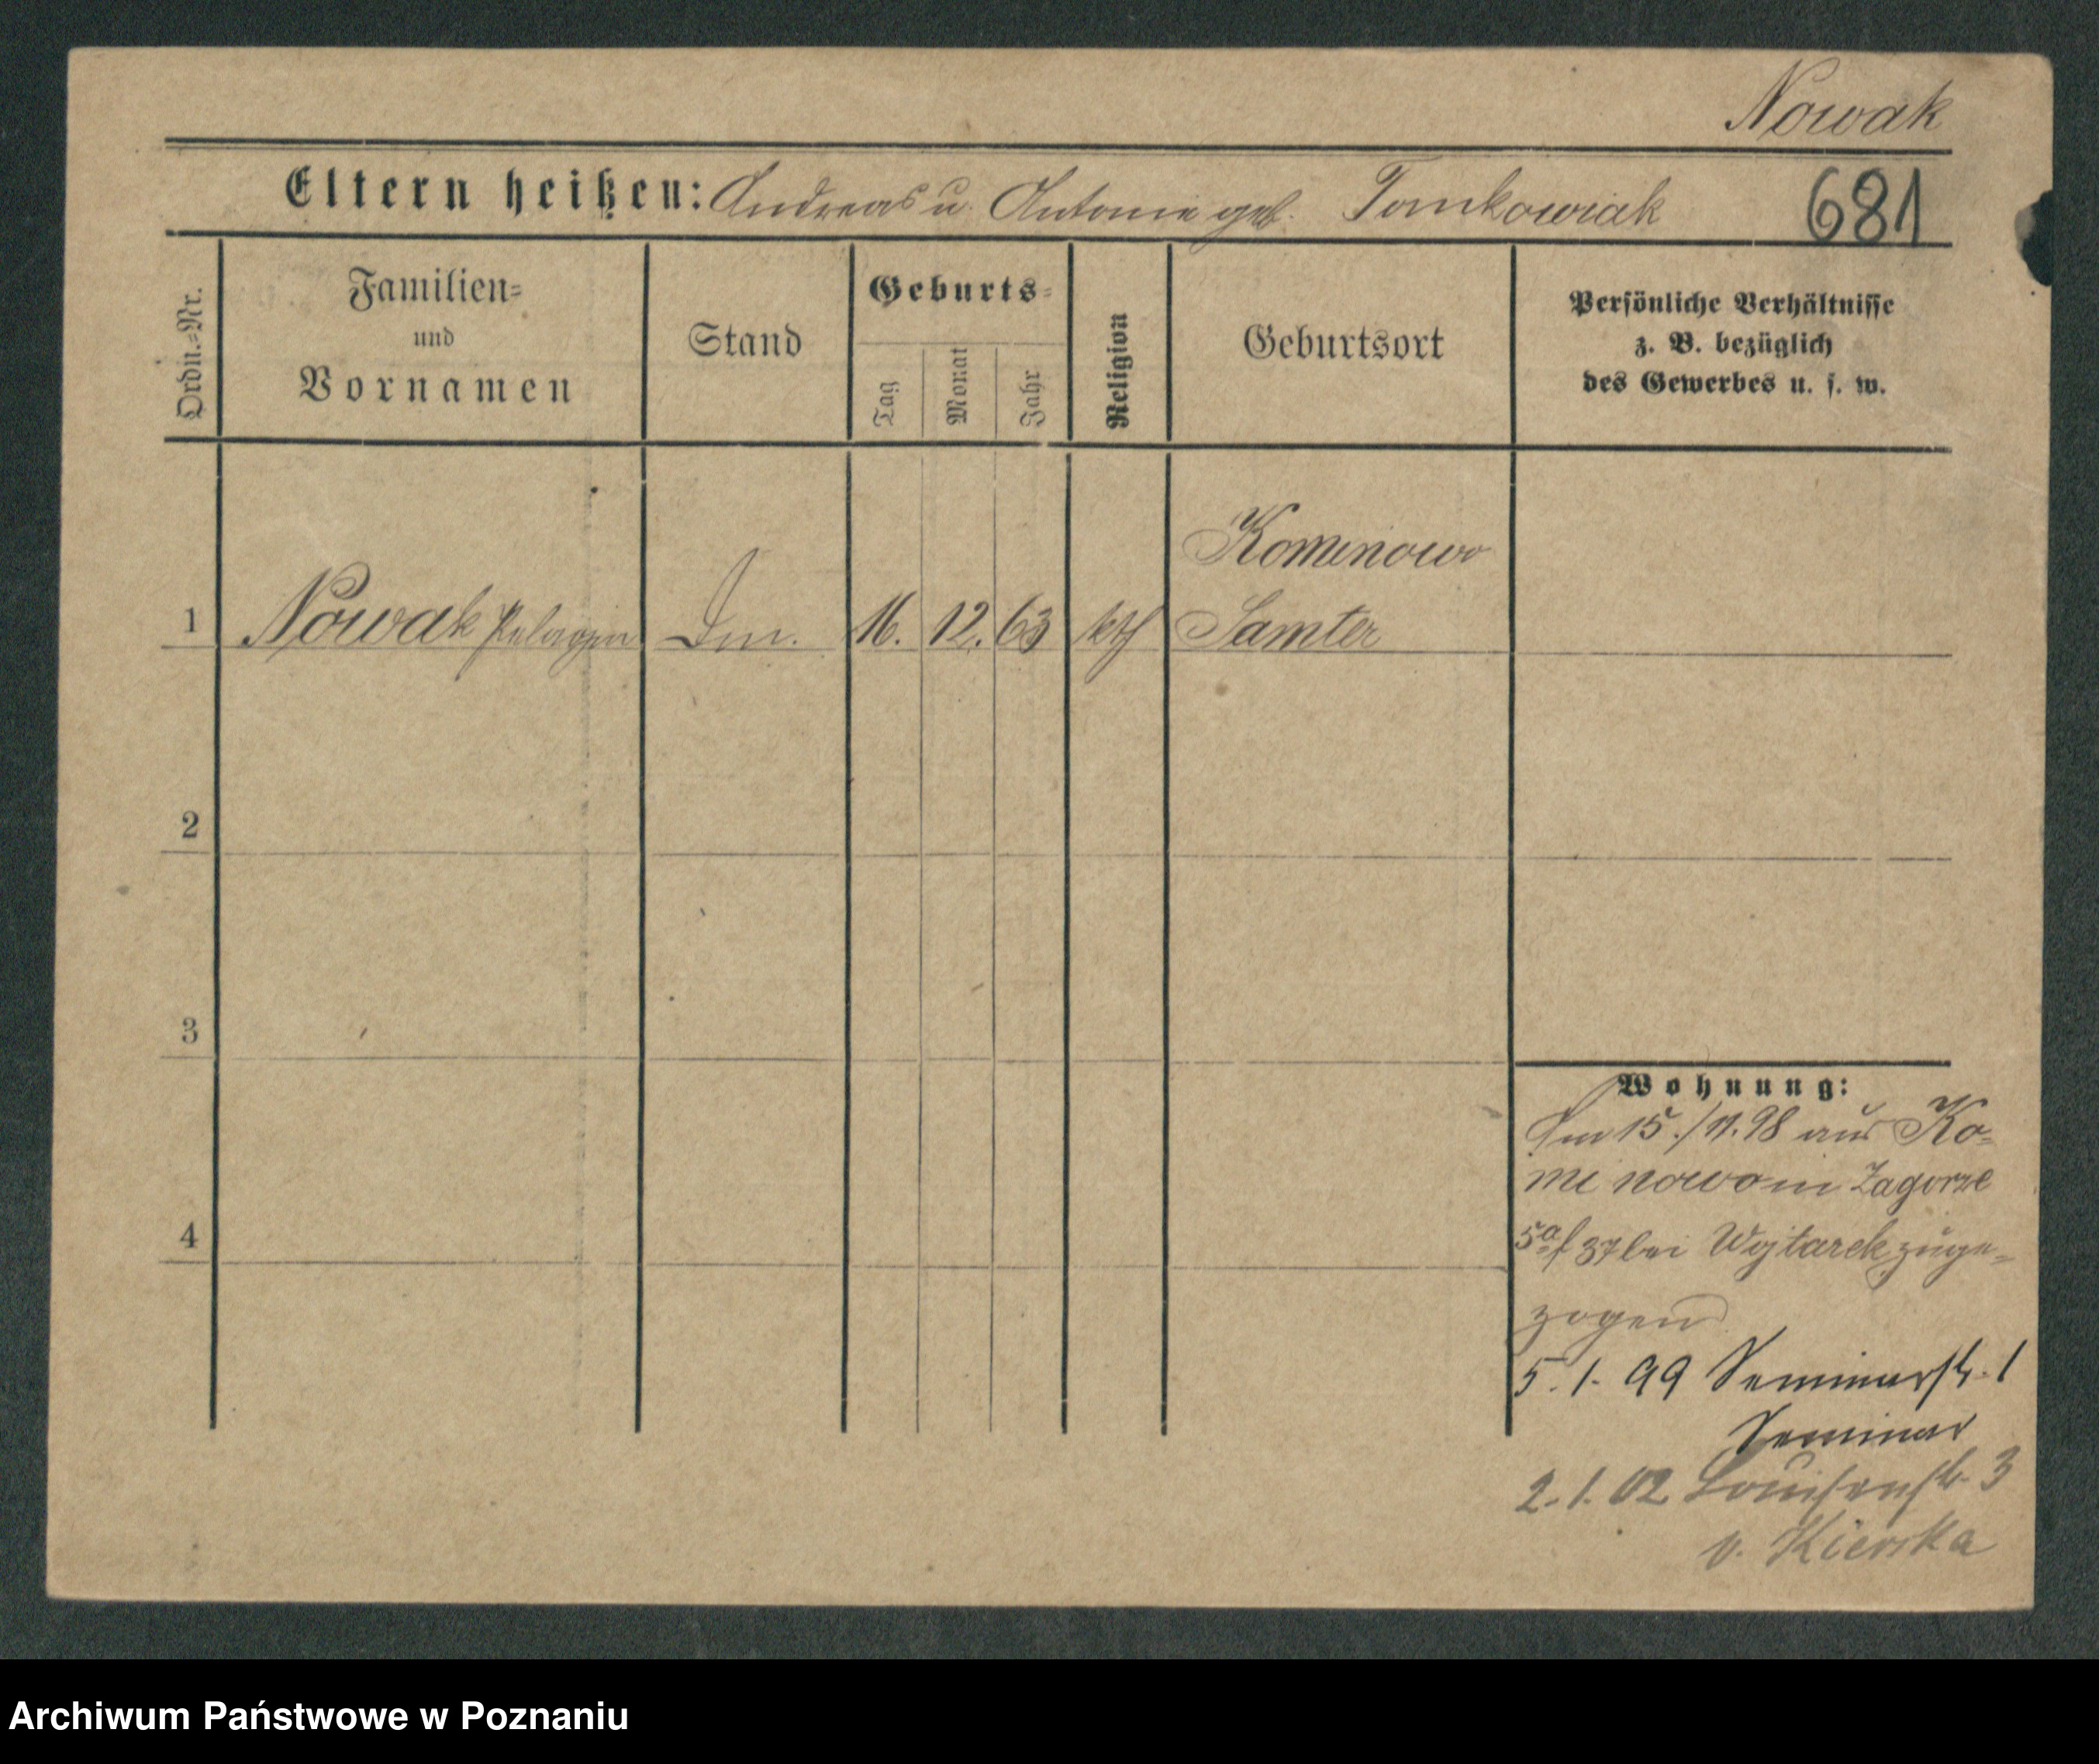 Nowak
Eltern heißen: Andreas u. Antonie geb. Tomkowiak 681
Ordn.-Nr.
Familien-
und
Vornamen
Stand
Geburts-
Tag
Monat
Jahr
Religion
Geburtsort
Persönliche Verhältnisse
z. B. bezüglich
des Gewerbes u. s. w.
Kominowo
1 Nowak Pelagia 16. 12. 63 kth Samter
2
3
4
Wohnung:
15./11.98 aus Ko-
mi nowo in Zagorze
5a/37 bei Wojtarek zuge-
zogen
5. 1. 99 Seminarstr. 1
Seminar
2. 1. 02 Louisenstr. 3
v. Kierska
Archiwum Państwowe w Poznaniu